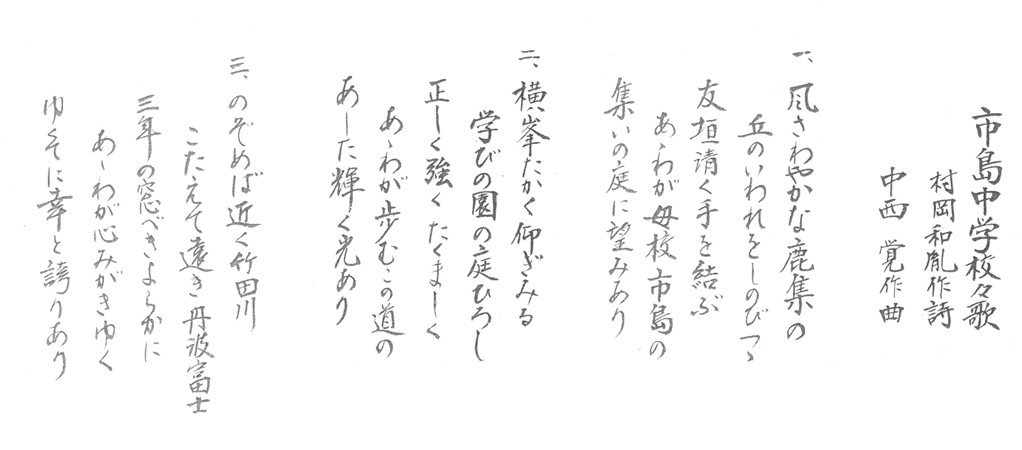 市島中学校々歌
村岡和胤作詩
中西 覚作曲
一、風さわやかな鹿集の
丘のいわれをしのびつゝ
友垣清く手を結ぶ
あゝわが母校市島の
集いの庭に望みあり
二、横峯たかく仰ぎみる
学びの園の庭ひろし
正しく強くたくましく
あゝわが歩むこの道の
あした輝く光あり
三、のぞめば近く竹田川
こたえて遠き丹波富士
三年の窓べきよらかに
あゝわが心みがきゆく
ゆくてに幸と誇りあり